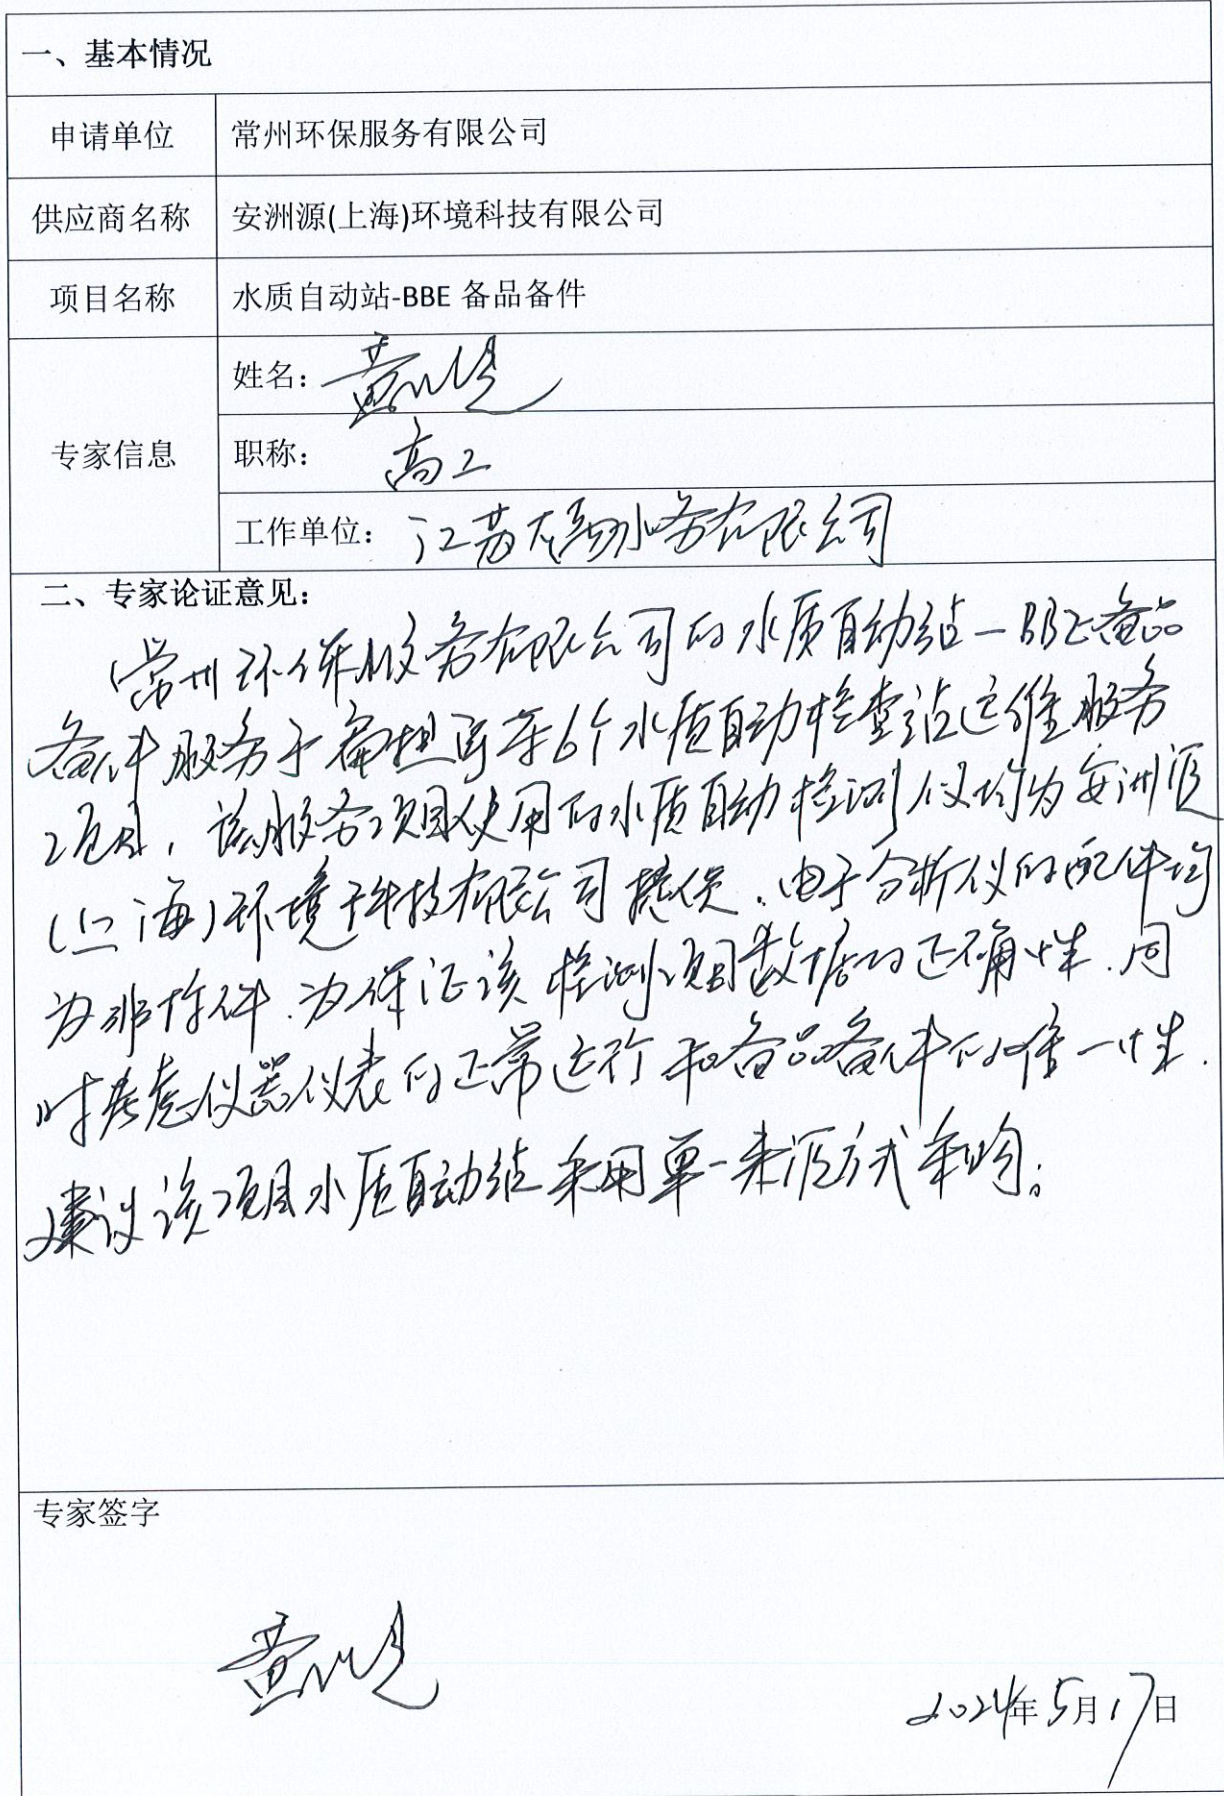 一、基本情况
申请单位 常州环保服务有限公司
供应商名称 安洲源(上海)环境科技有限公司
项目名称 水质自动站-BBE 备品备件
专家信息
姓名: 黄
职称: 高工
工作单位: 江苏大禹水务有限公司
二、专家论证意见:
常州环保服务有限公司的水质自动站-BBE备品
备件服务于 等6个水质自动检查站运维服务
项目,该服务项目使用的水质自动检测仪均为安洲源
(上海)环境科技有限公司提供.由于分析仪的配件均
为非标件.为保证该检测项目数据的正确性.同
时考虑仪器仪表的正常运行和备品备件的唯一性.
建议该项目水质自动站采用单一来源方式采购。
专家签字
黄
2024年5月17日